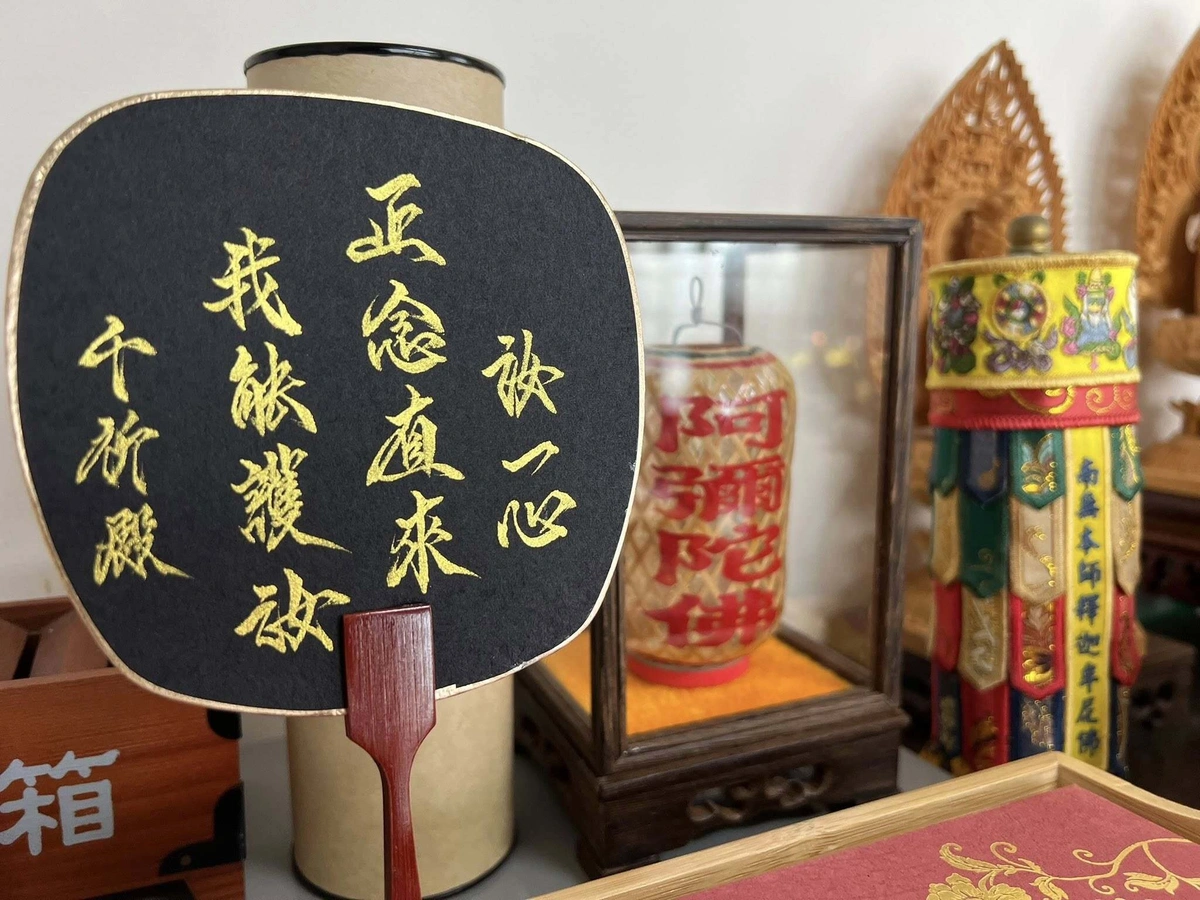 汝一心
正念直來
我能護汝
千祈殿
阿彌陀佛
南無本師釋迦牟尼佛
箱